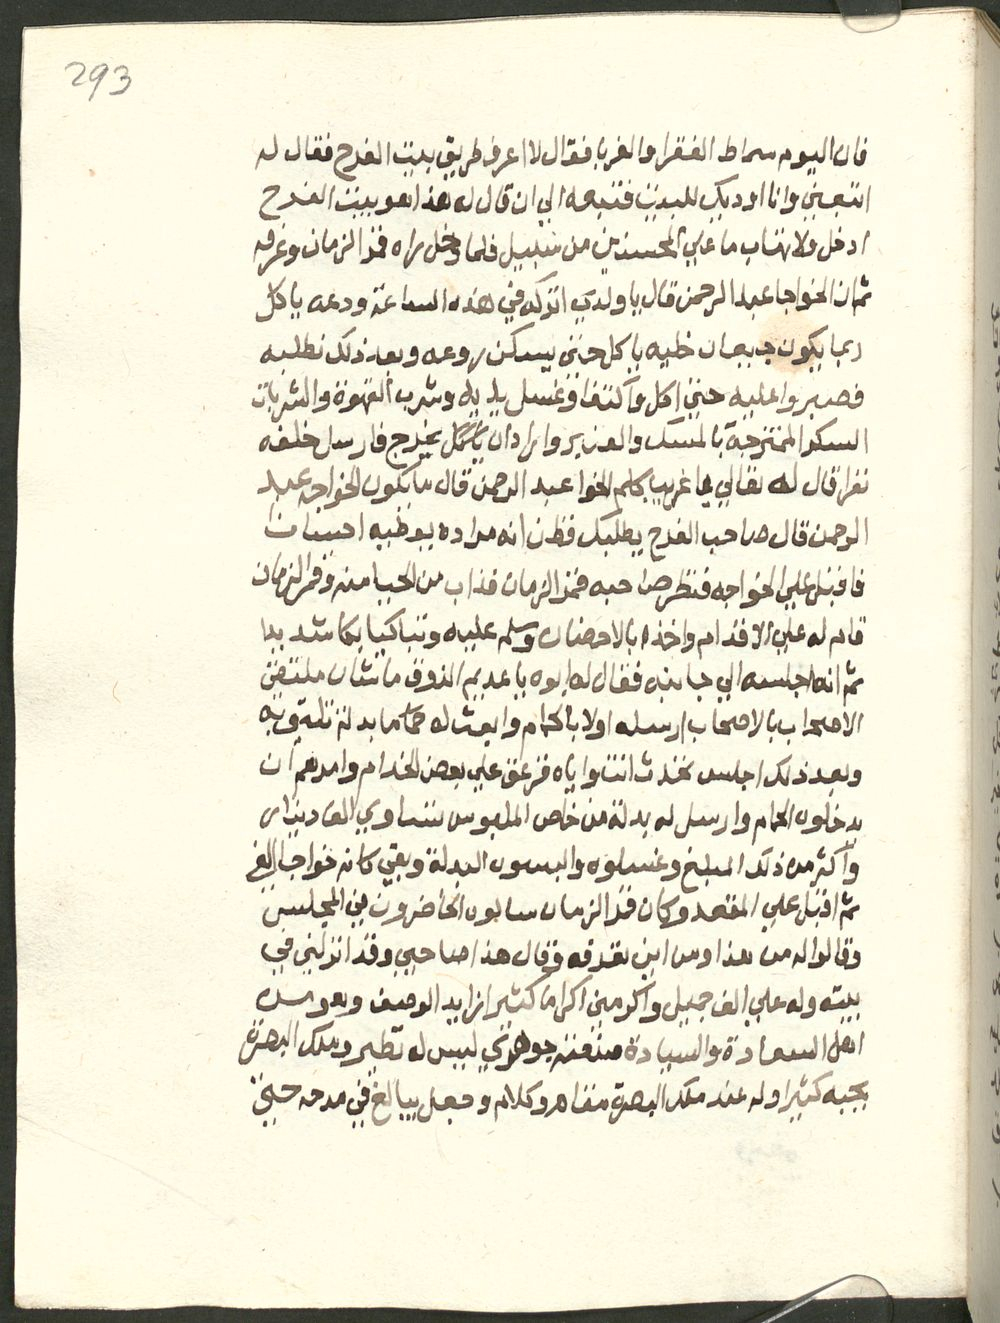 293
فان اليوم سماط الفقرا والغربا فقال لا اعرف طريق بيت الفرح فقال له
اتبعني وانا اوديك للبيت فتبعه الي ان قال له هذا هو بيت الفرح
ادخل ولا تهاب ما علي المحسنين من سبيل فلما دخل راه قمر الزمان وعرفه
ثم ان الخواجا عبد الرحمن قال يا ولدي اتركه في هذه الساعة ودعه ياكل
ربما يكون جيعان خليه ياكل حتي يسكن روعه وبعد ذلك نطلبه
فصبروا عليه حتي اكل واكتفا وغسل يديه وشرب القهوة والشربات
السكر الممتزجة بالمسك والعنبر واراد ان يخرج فارسل خلفه
نفرا قال له تعالي يا غريب كلم الخواجا عبد الرحمن قال ما يكون الخواجه عبد
الرحمن قال صاحب الفرح يطلبك فظن انه مراده يعطيه احسانا
فاقبل علي الخواجه فنظر صاحبه قمر الزمان فذاب من الحيا منه وقمر الزمان
قام له علي الاقدام واخذه بالاحضان وسلم عليه وتباكيا بكا شديدا
ثم انه اجلسه الي جانبه فقال له ابوه يا عديم الذوق ما شان ملتقي
الاصحاب بالاصحاب ارسله اولا بالحمام وابعث له بدلة تليق به
وبعد ذلك اجلس تحدث انت واياه فزعق علي بعض الخدام وامرهم ان
يدخلوه الحمام وارسل له بدلة من خاص الملبوس تساوي الف دينار
واكثر من ذلك المبلغ وغسلوه والبسوه البدلة وبقي كانه خواجا
ثم اقبل علي المقعد وكان قمر الزمان سالوه الحاضرون في المجلس
وقالوا له من هذا ومن اين تعرفه وقال هذا صاحبي وقد انزلني في
بيته وله علي الف جميل واكرمني اكراما كثيرا زايد الوصف وهو من
اهل السعادة والسيادة صنعته جوهرجي ليس له نظير وملك البصرة
يحبه كثيرا وله عند ملك البصرة مقام وكلام وجعل يبالغ في مدحه حتي